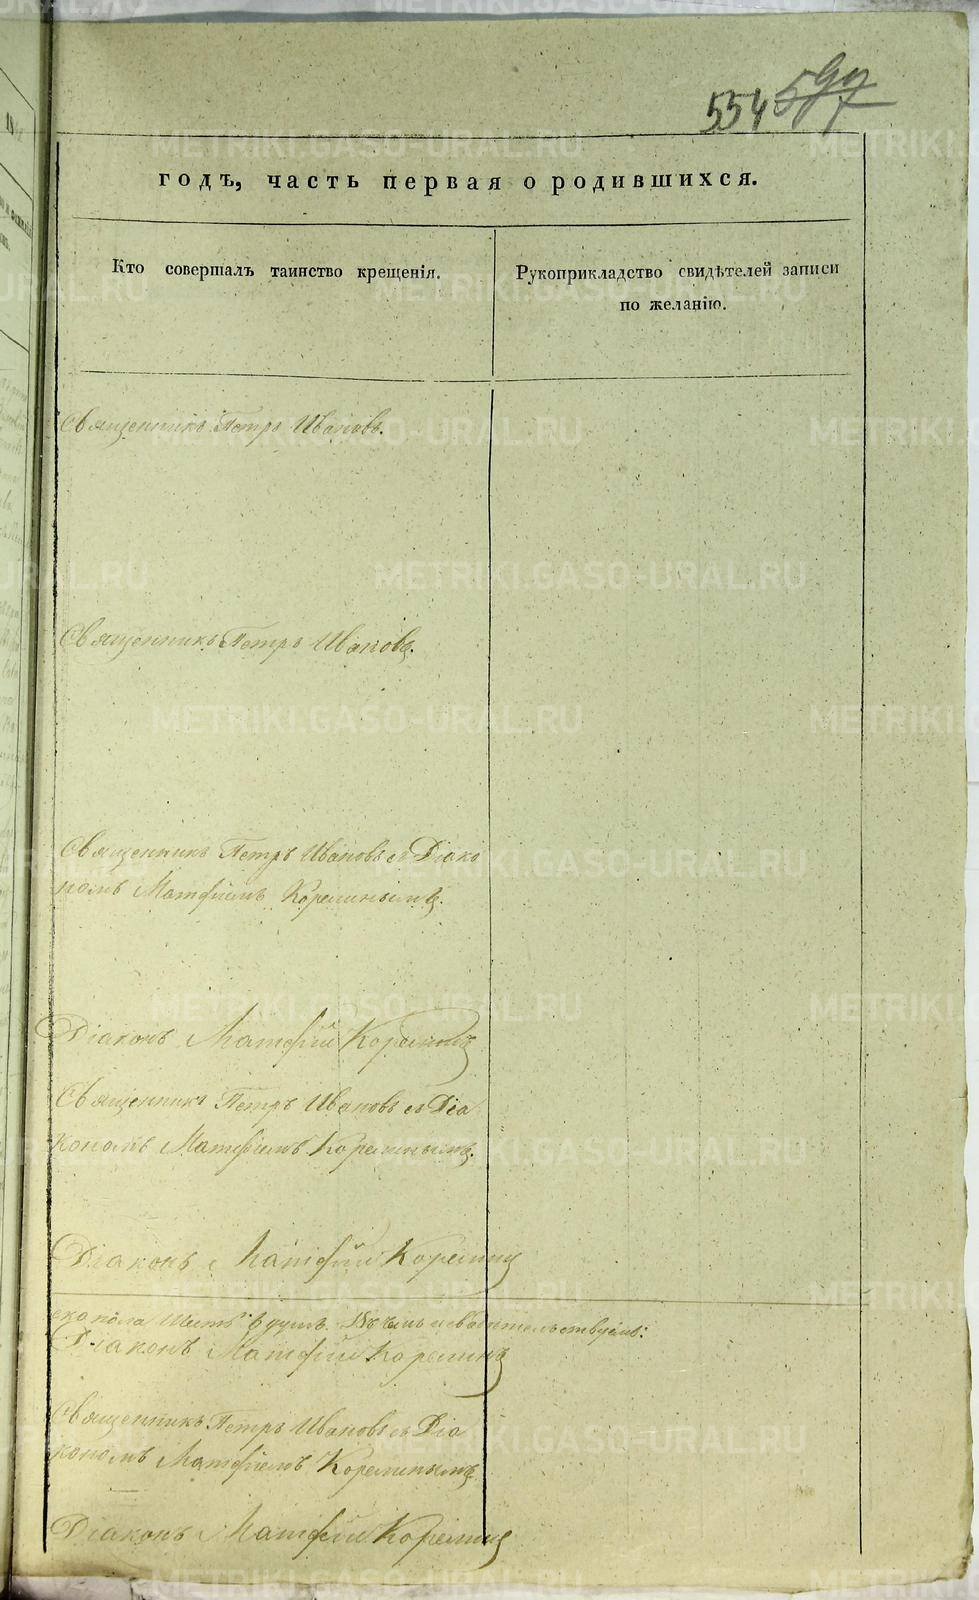 554 597
годъ, часть первая о родившихся.
Кто совершалъ таинство крещенія.
Рукоприкладство свидѣтелей записи
по желанію.
Священникъ Петръ Ивановъ.
Священникъ Петръ Ивановъ.
Священникъ Петръ Ивановъ съ Діако
номъ Матфіемъ Корелинымъ.
Діаконъ Матфій Корелинъ
Священникъ Петръ Ивановъ съ Діа
кономъ Матфіемъ Корелинымъ.
Діаконъ Матфій Корелинъ
пола шесть 6 душъ. Въ чемъ и свидѣтельствуемъ:
Діаконъ Матфій Корелинъ
Священникъ Петръ Ивановъ съ Діа
кономъ Матфіемъ Корелинымъ
Діаконъ Матфій Корелинъ
METRIKI.GASO-URAL.RU